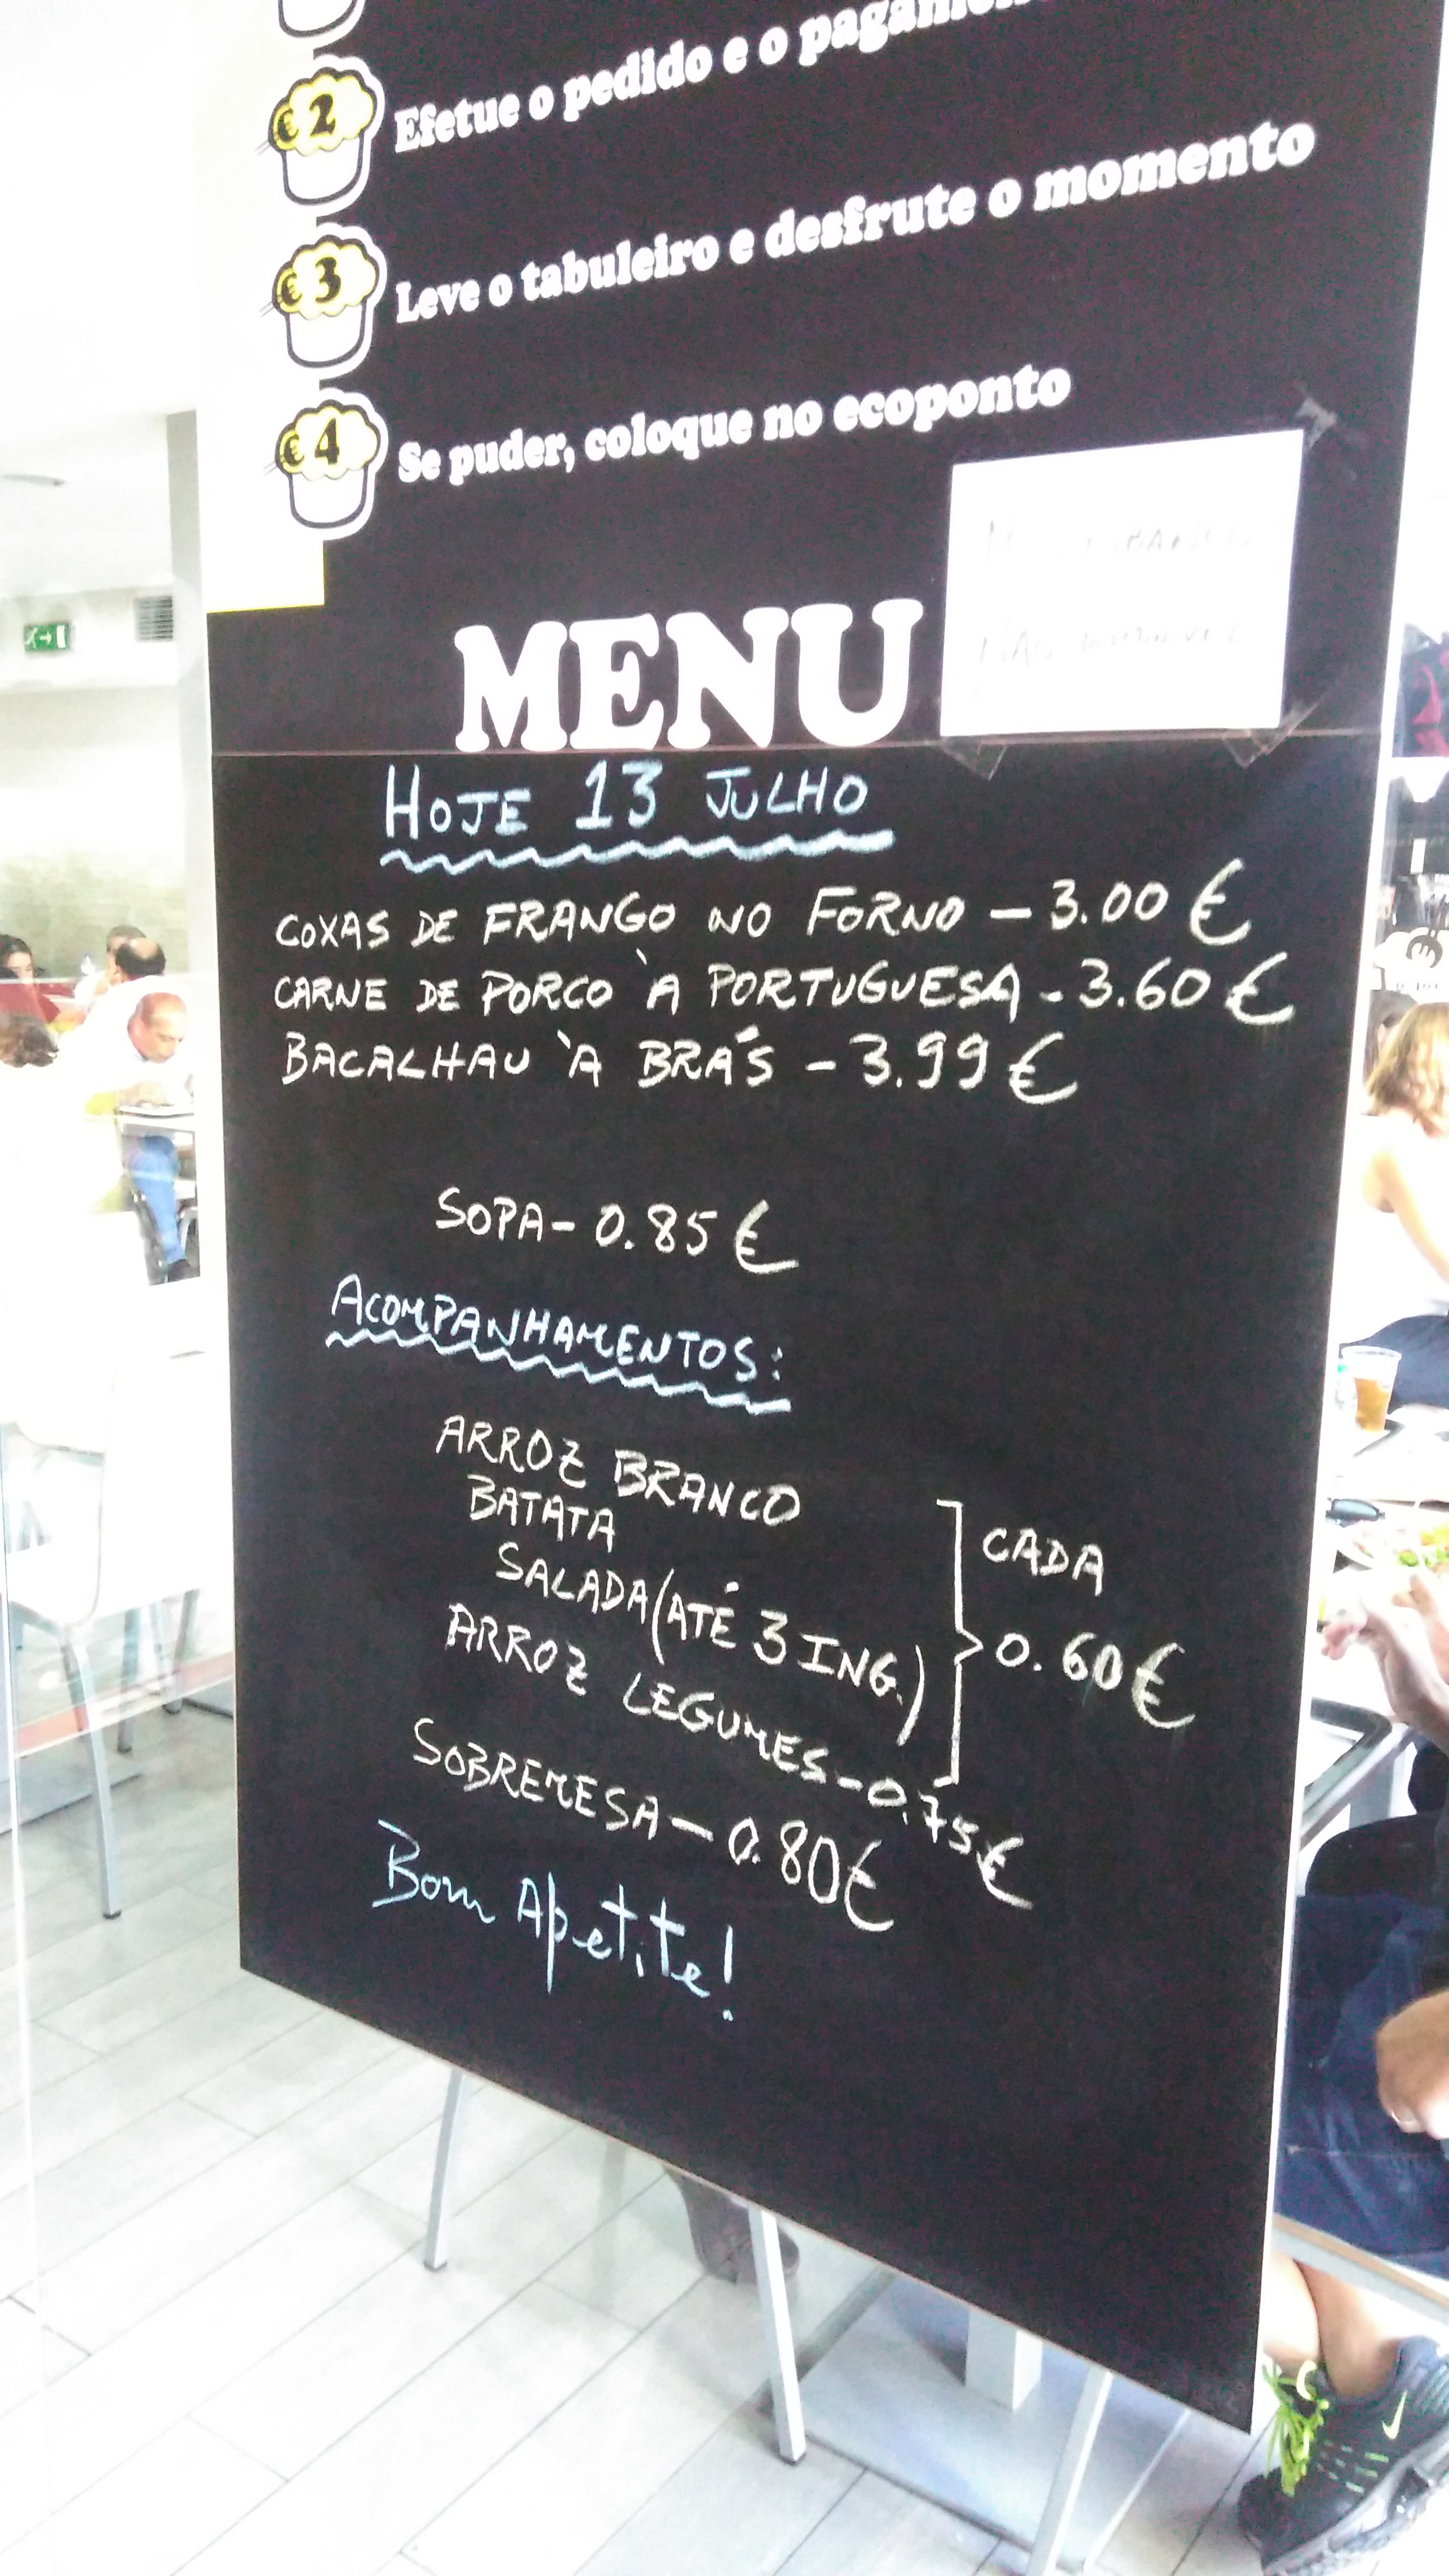 €2 Efetue o pedido e o
€3 Leve o tabuleiro e desfrute o momento
€4 Se puder, coloque no ecoponto
MENU
HOJE 13 JULHO
COXAS DE FRANGO NO FORNO - 3.00 €
CARNE DE PORCO À PORTUGUESA - 3.60 €
BACALHAU À BRÁS - 3.99 €
SOPA - 0.85 €
ACOMPANHAMENTOS:
ARROZ BRANCO
BATATA
SALADA (ATÉ 3 ING.)
CADA
0.60 €
ARROZ LEGUMES - 0.75 €
SOBREMESA - 0.80 €
Bom Apetite!